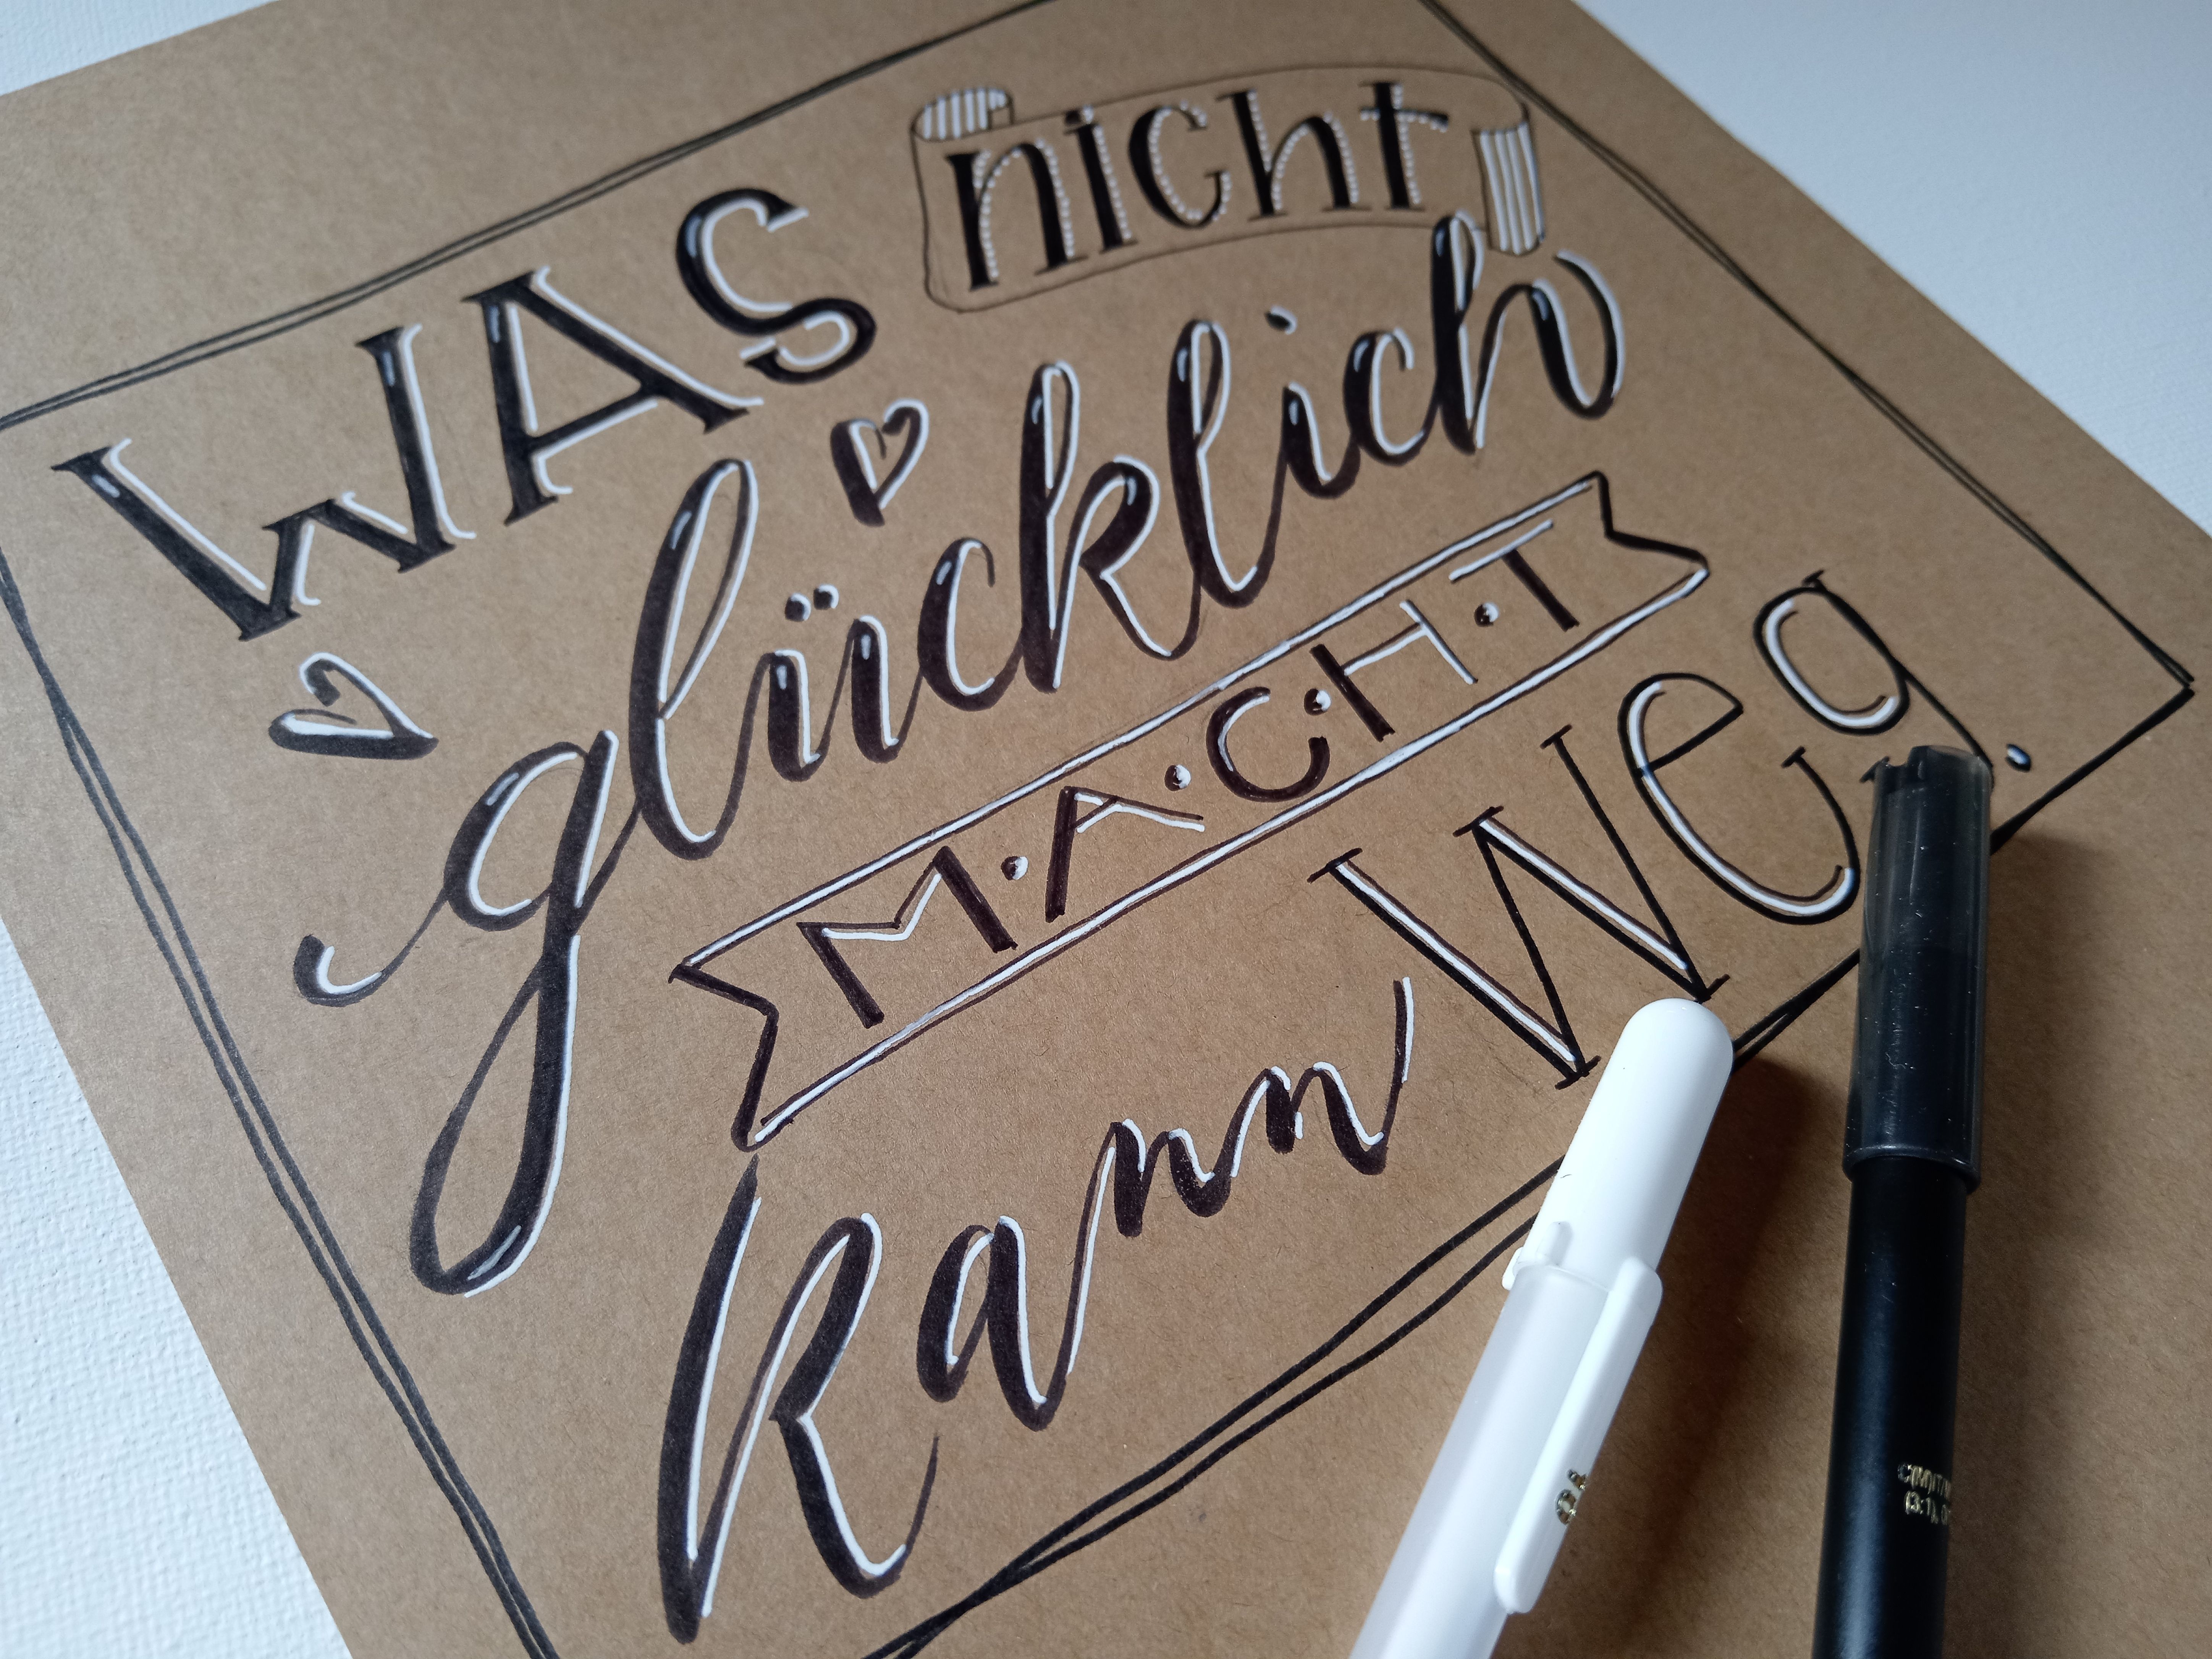 WAS nicht
glücklich
M·A·C·H·T
kann weg.